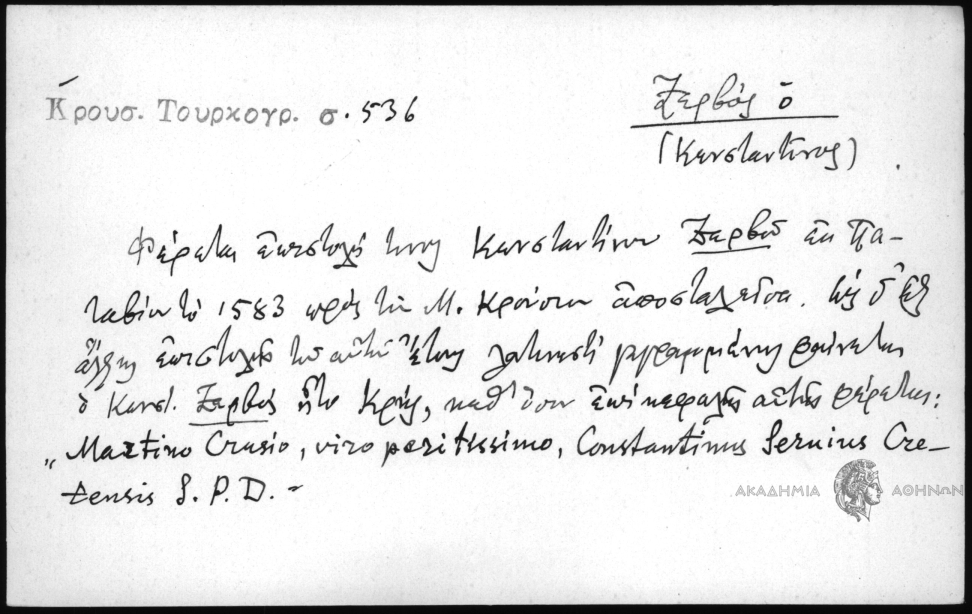 Κρουσ. Τουρκογρ. σ. 536
Ζερβός ὁ
(Κωνσταντῖνος)
Φέρεται ἐπιστολή τινος Κωνσταντίνου Ζερβοῦ ἐκ Πα-
ταβίου τῷ 1583 πρὸς τὸν Μ. Κρούσιον ἀποσταλεῖσα. Ὡς δ' ἐξ
ἄλλης ἐπιστολῆς τοῦ αὐτοῦ ἔτους λατινιστὶ γεγραμμένης φαίνεται
ὁ Κωνστ. Ζερβὸς ἦτο Κρής, καθ' ὅσον ἐπὶ κεφαλῆς αὐτῆς φέρεται:
„Martino Crusio, viro peritissimo, Constantinus Servius Cre-
tensis S. P. D. -
ΑΚΑΔΗΜΙΑ ΑΘΗΝΩΝ